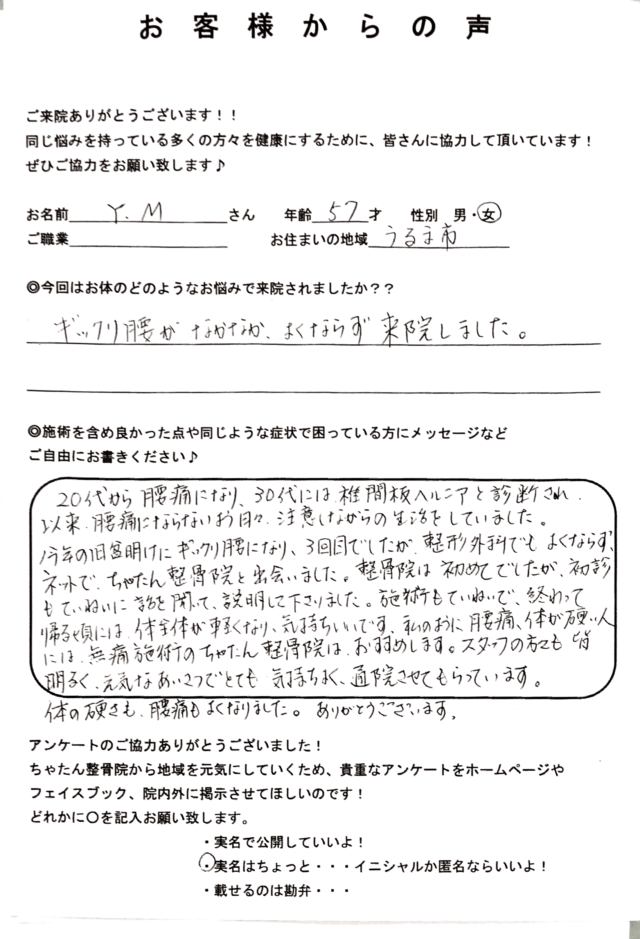 お客様からの声
ご来院ありがとうございます！！
同じ悩みを持っている多くの方々を健康にするために、皆さんに協力して頂いています！
ぜひご協力をお願い致します♪
お名前 Y.M さん 年齢 57 才 性別 男・女
ご職業 お住まいの地域 うるま市
◎今回はお体のどのようなお悩みで来院されましたか？？
ギックリ腰が なかなか、よくならず 来院しました。
◎施術を含め良かった点や同じような症状で困っている方にメッセージなど
ご自由にお書きください♪
20代から 腰痛になり、30代には 椎間板ヘルニアと診断され、
以来、腰痛にならないよう日々、注意しながらの生活をしていました。
今年の旧盆明けに ギックリ腰になり、3回目でしたが、整形外科でも よくならず、
ネットで、ちゃたん整骨院と出会いました。整骨院は 初めてでしたが、初診
もていねいに 話を聞いて、説明して下さいました。施術もていねいで、終わって
帰る頃には、体全体が軽くなり、気持ちいいです、私のように腰痛、体が硬い人
には、無痛施術のちゃたん整骨院は、おすすめします。スタッフの方々も 皆
明るく、元気なあいさつでとても 気持ちよく、通院させてもらっています。
体の硬さも、腰痛もよくなりました。ありがとうございます。
アンケートのご協力ありがとうございました！
ちゃたん整骨院から地域を元気にしていくため、貴重なアンケートをホームページや
フェイスブック、院内外に掲示させてほしいのです！
どれかに〇を記入お願い致します。
・実名で公開していいよ！
・実名はちょっと・・・イニシャルか匿名ならいいよ！
・載せるのは勘弁・・・